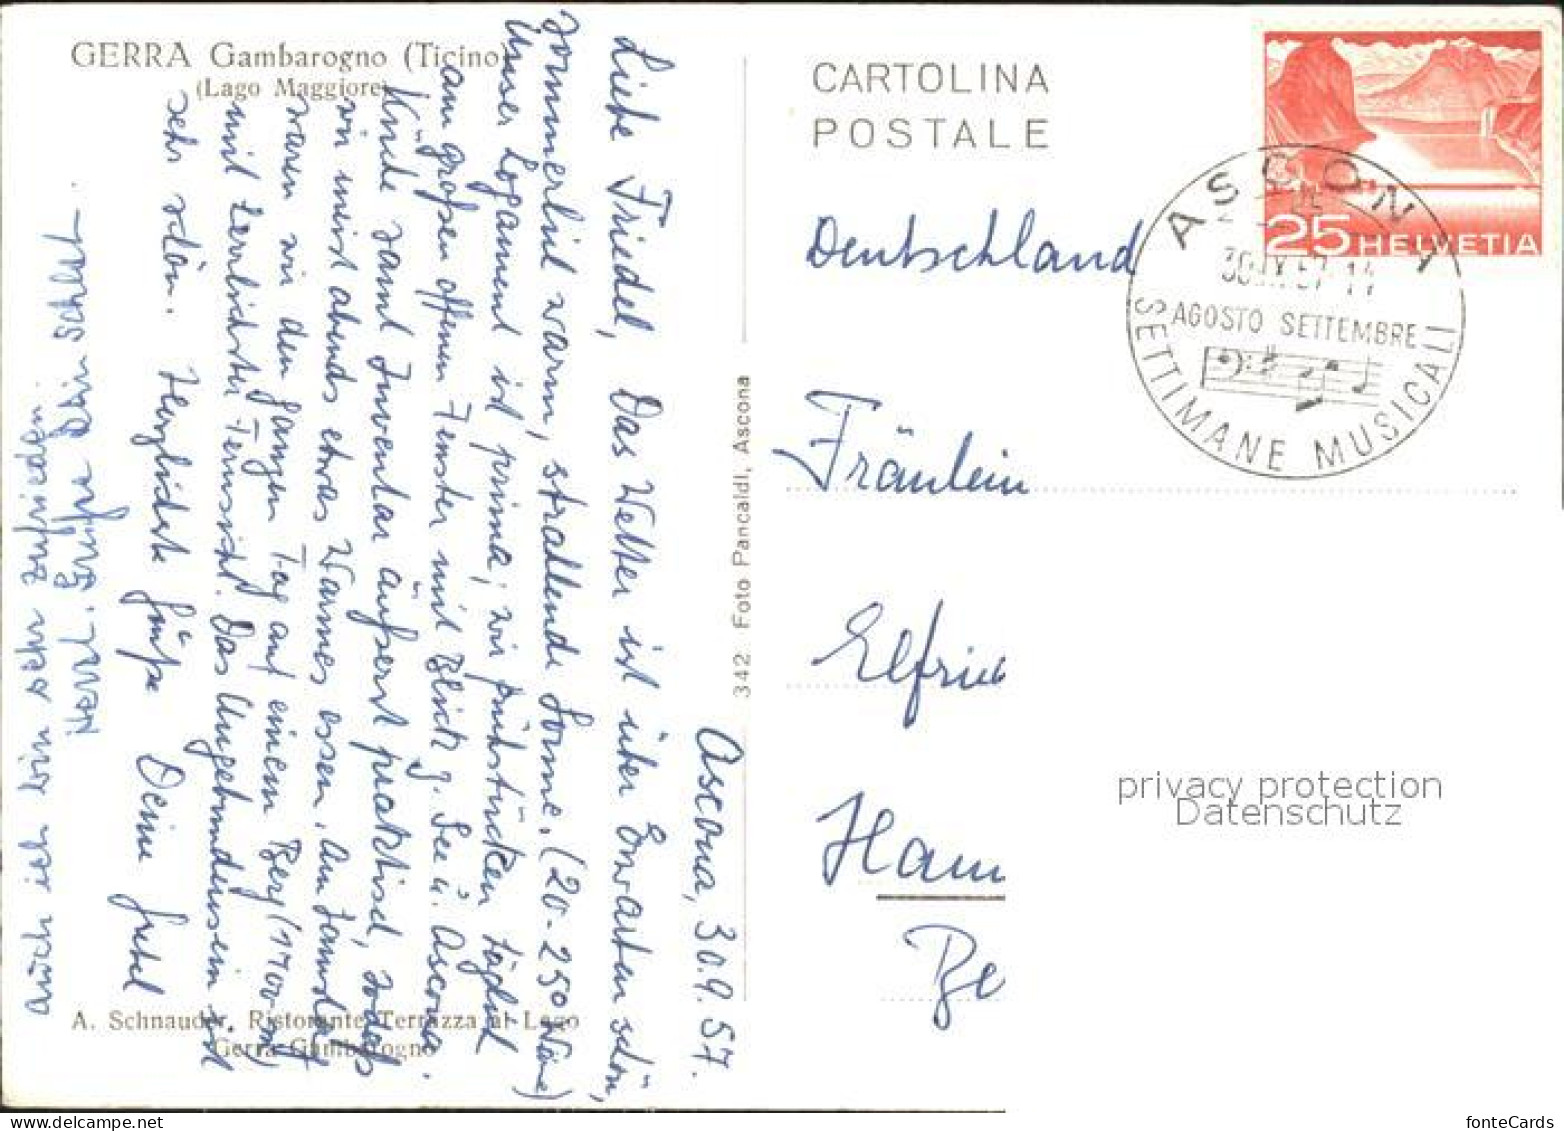 GERRA Gambarogno (Ticino)
(Lago Maggiore)
CARTOLINA
POSTALE
25 HELVETIA
ASCONA
30.IX.57-14
AGOSTO SETTEMBRE
SETTIMANE MUSICALI
Ascona, 30.9.57.
Liebe Friedel, Das Wetter ist über Erwarten schön,
sommerlich warm, strahlende Sonne. (20-25° Wärme)
Unser Logament ist prima; wir frühstücken täglich
am großen offenen Fenster mit Blick z. See u. Ascona.
Küche samt Inventar äußerst praktisch, sodaß
wir meist abends etwas Warmes essen. Am Samstag
waren wir den ganzen Tag auf einem Berg (1700 m)
mit herrlichster Fernsicht. Das Ungebundensein ist
sehr schön. Herzlichste Grüße Deine Gretel
auch ich bin sehr zufrieden
Herzl. Grüße Dein
Deutschland
Fräulein
Elfrie
Ham
Be
342 Foto Pancaldi, Ascona
A. Schnauder, Ristorante Terrazza al Lago
Gerra Gambarogno
privacy protection
Datenschutz
fonteCards